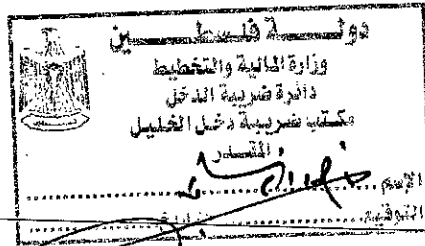 دولة فلسطين
وزارة المالية والتخطيط
دائرة ضريبة الدخل
مكتب ضريبة دخل الخليل
المقدر
الاسم
التوقيع